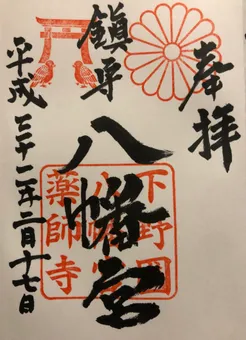 奉拝
鎮守
八幡宮
平成三十一年二月十七日
下野國
薬師寺